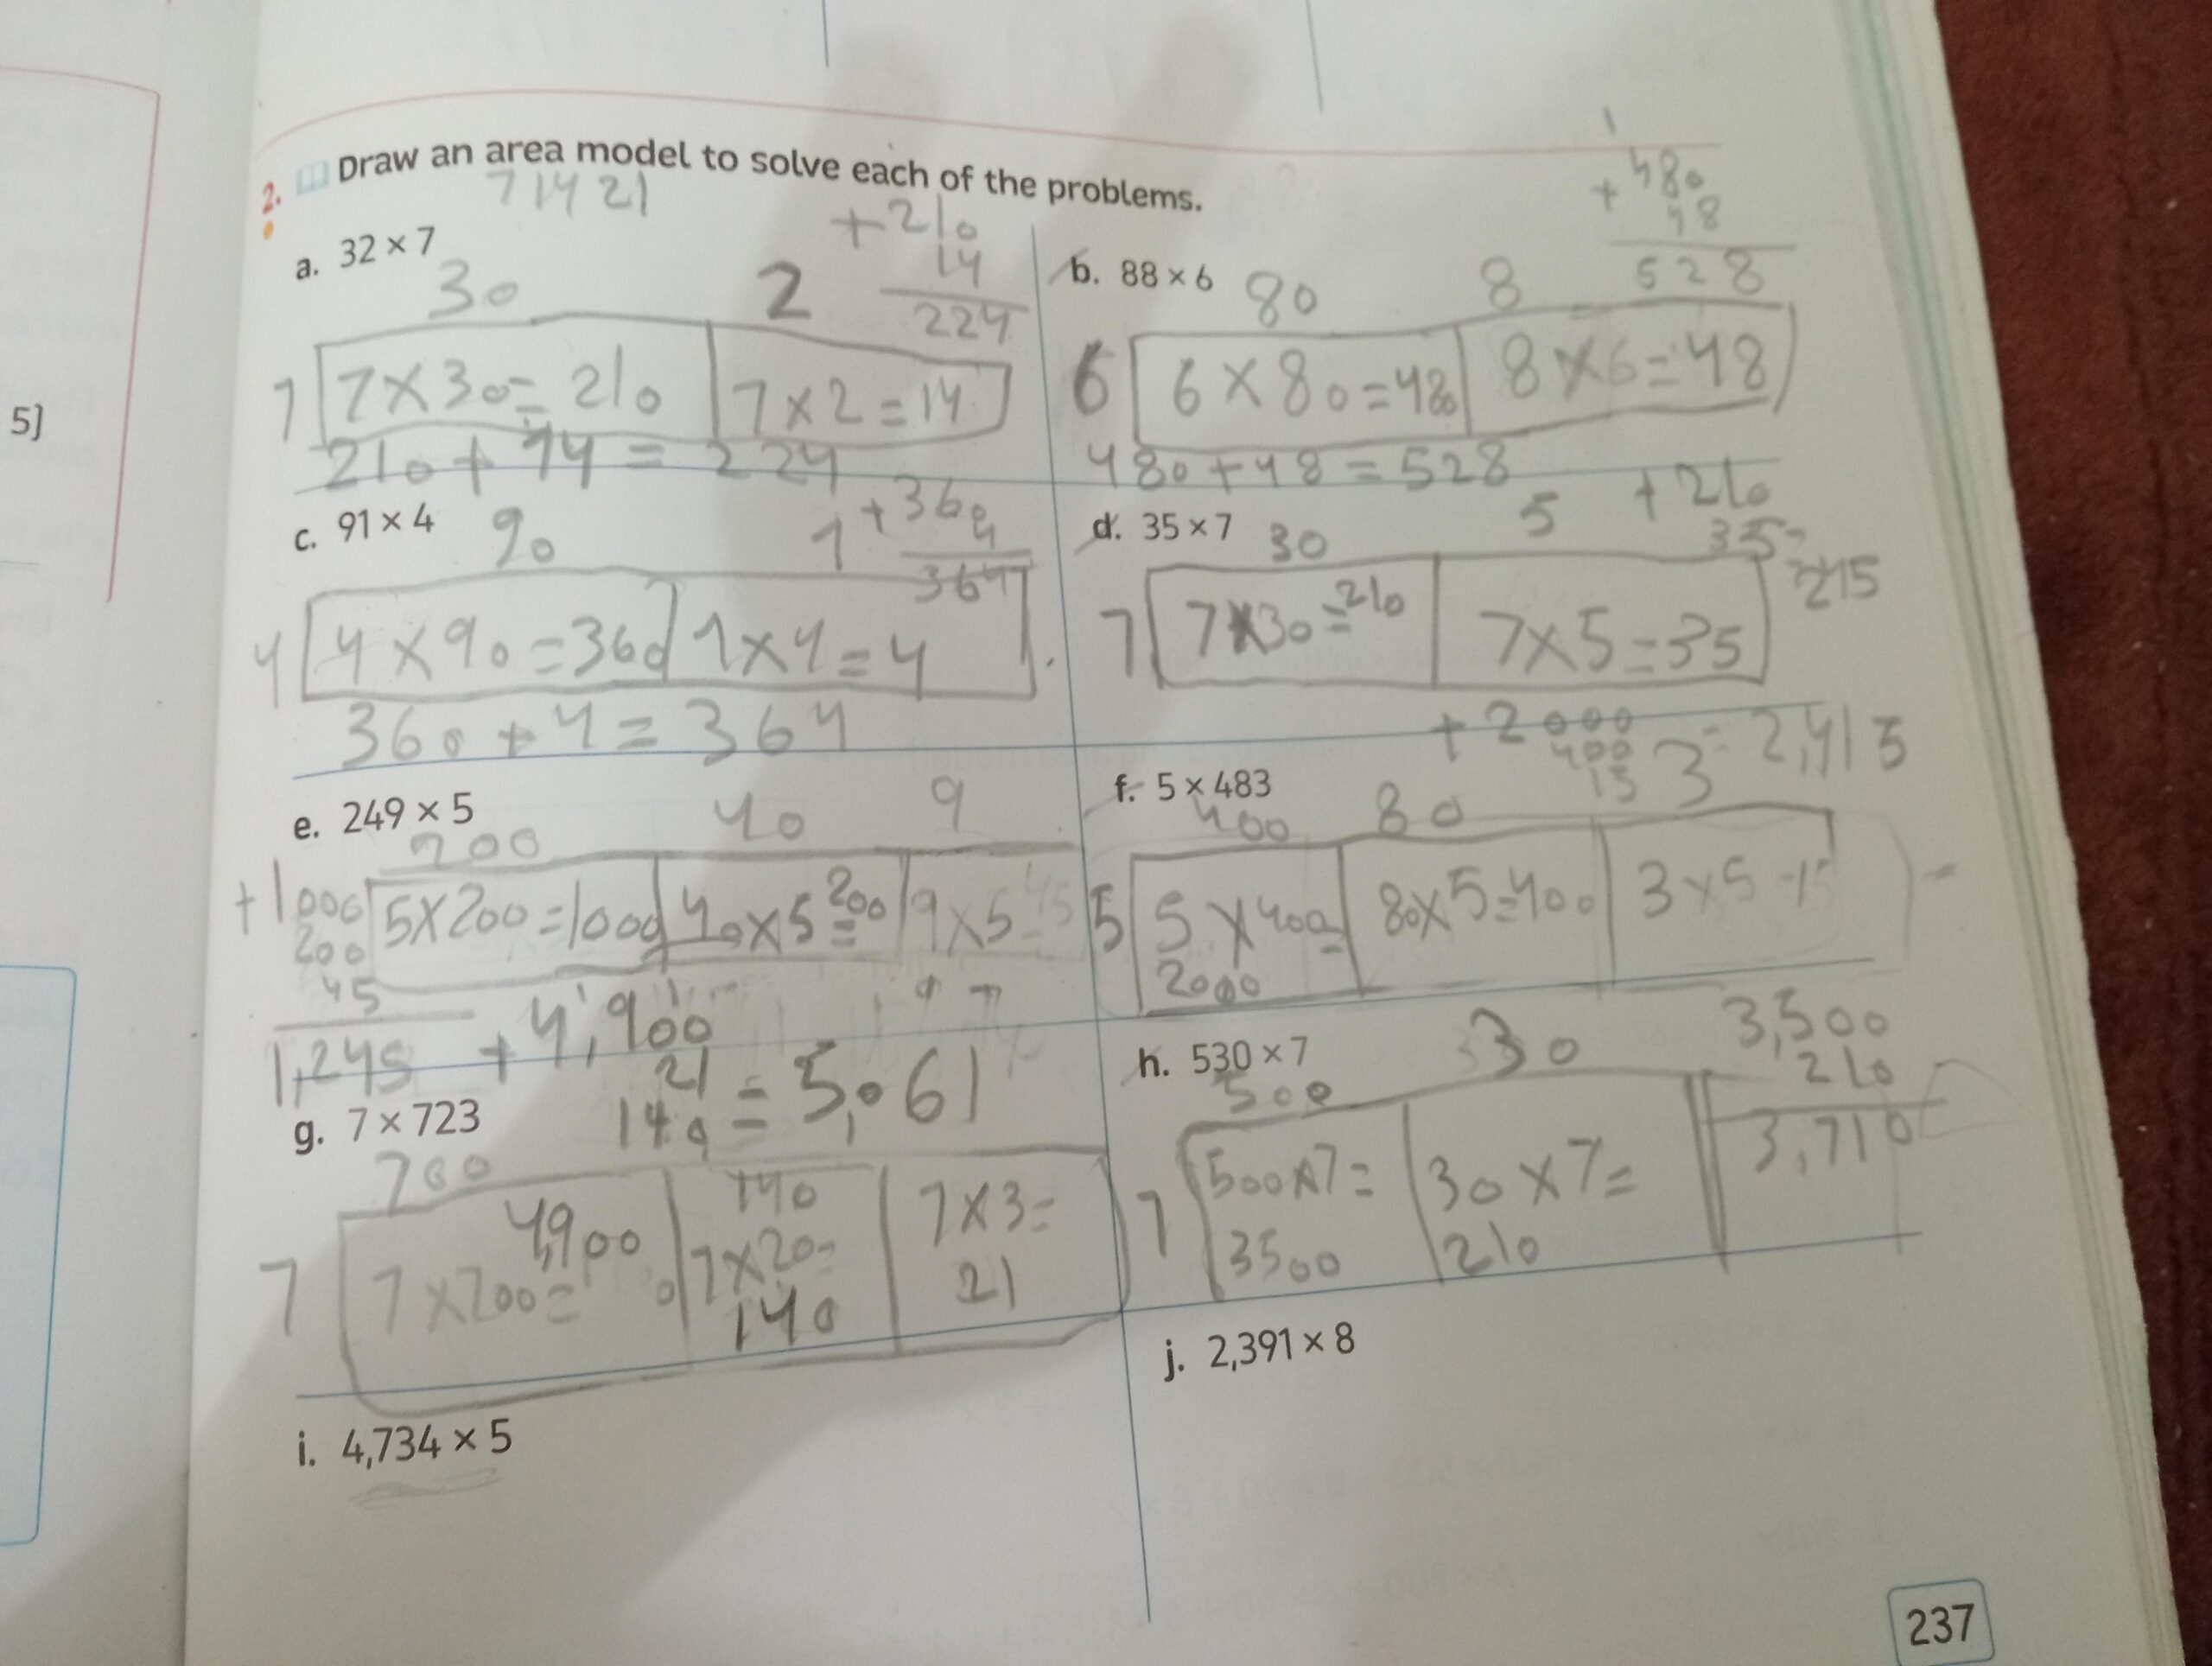 5]
2. Draw an area model to solve each of the problems.
7 14 21
a. 32 × 7
30 2
+210
14
224
7
7×30=210
7×2=14
210+14=224
b. 88 × 6
80 8
1
+480
48
528
6
6×80=480
8×6=48
480+48=528
c. 91 × 4
90 1
+360
4
364
4
4×90=360
1×4=4
360+4=364
d. 35 × 7
30 5
+210
35=
215
7
7×30=210
7×5=35
e. 249 × 5
200 40 9
+1000
200
45
1,245
5×200=1000
40×5=200
9×5=45
f. 5 × 483
400 80 3
+2000
400
15
=2,415
5
5×400=
2000
80×5=400
3×5=15
g. 7 × 723
700
+4,900
21
140
=5,061
7
7×700=
4,900
140
7×20=
140
7×3=
21
h. 530 × 7
500 30
3,500
210
3,710
7
500×7=
3500
30×7=
210
i. 4,734 × 5
j. 2,391 × 8
237